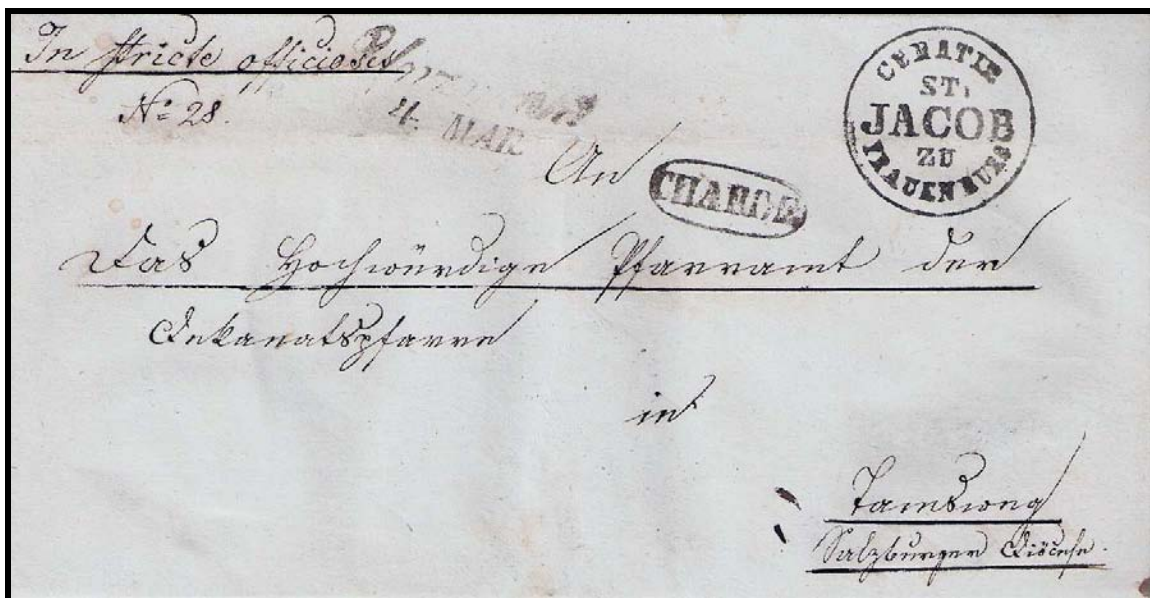 In stricte officiosis
No 28.
4. MAR
CURATIE
ST.
JACOB
ZU
FRAUENBURG
An
CHARGE
Das Hochwürdige Pfarramt der
Dekanatspfarre
in
Tamsweg
Salzburger Diöcese.